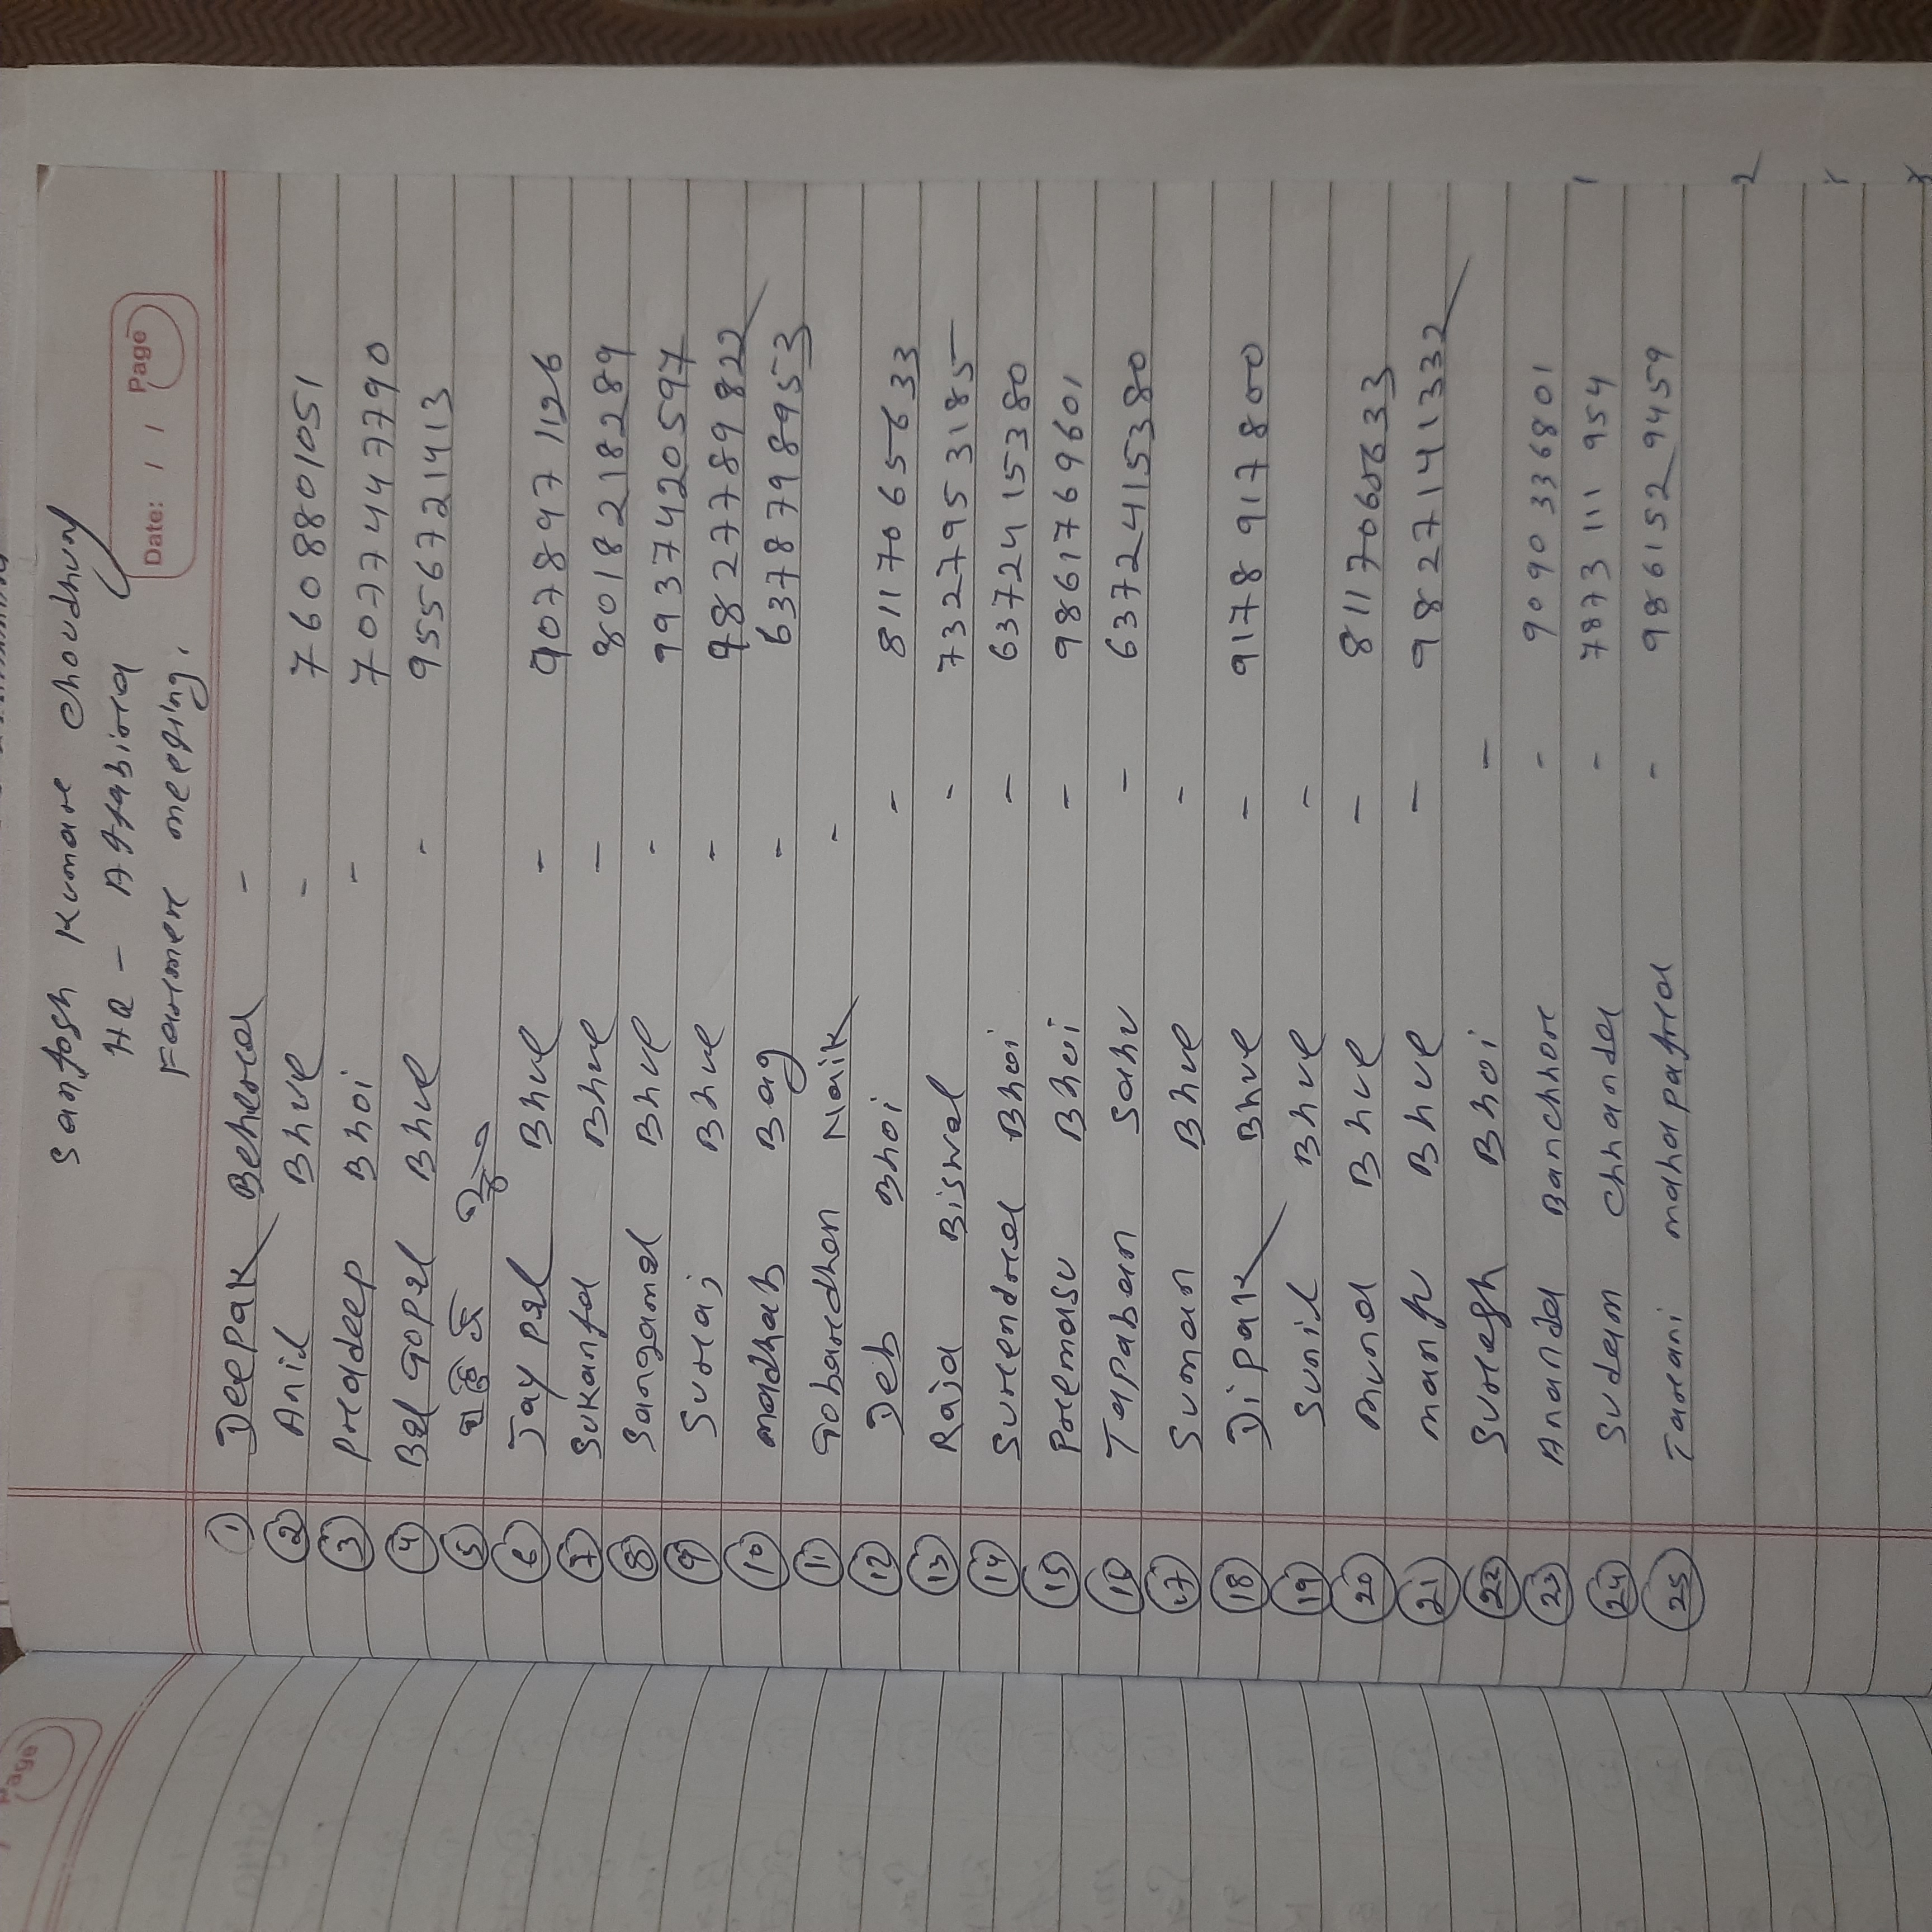 Santosh Kumare Choudhury
HQ - Attabira
Date: / / Page
Faremer meeting.
1 Deepak Beherea -
2 Anil Bhue - 7608801051
3 Preadeep Bhoi - 7077447790
4 Bal Gopal Bhue - 9556721413
5
6 Jay pal Bhue - 9078971126
7 Sukanta Bhue - 8018218289
8 Sangama Bhue - 9937420597
9 Sureaj Bhue - 9827789822
10 madhab Bag - 6378798953
11 Gobaredhan Naik -
12 Deb Bhoi - 8117065633
13 Raja Biswal - 7327953185
14 Surendrea Bhoi - 6372415380
15 Premasu Bhoi - 9861769601
16 Tapaban Sahu - 6372415380
17 Suman Bhue -
18 Dipak Bhue - 9178917800
19 Sunil Bhue -
20 muna Bhue - 8117065633
21 mantu Bhue - 9827141332
22 Suresh Bhoi -
23 Ananda Banchhore - 9090336801
24 Sudam Chhanda - 7873111954
25 Tareani mahapatrea - 9861529459
Page